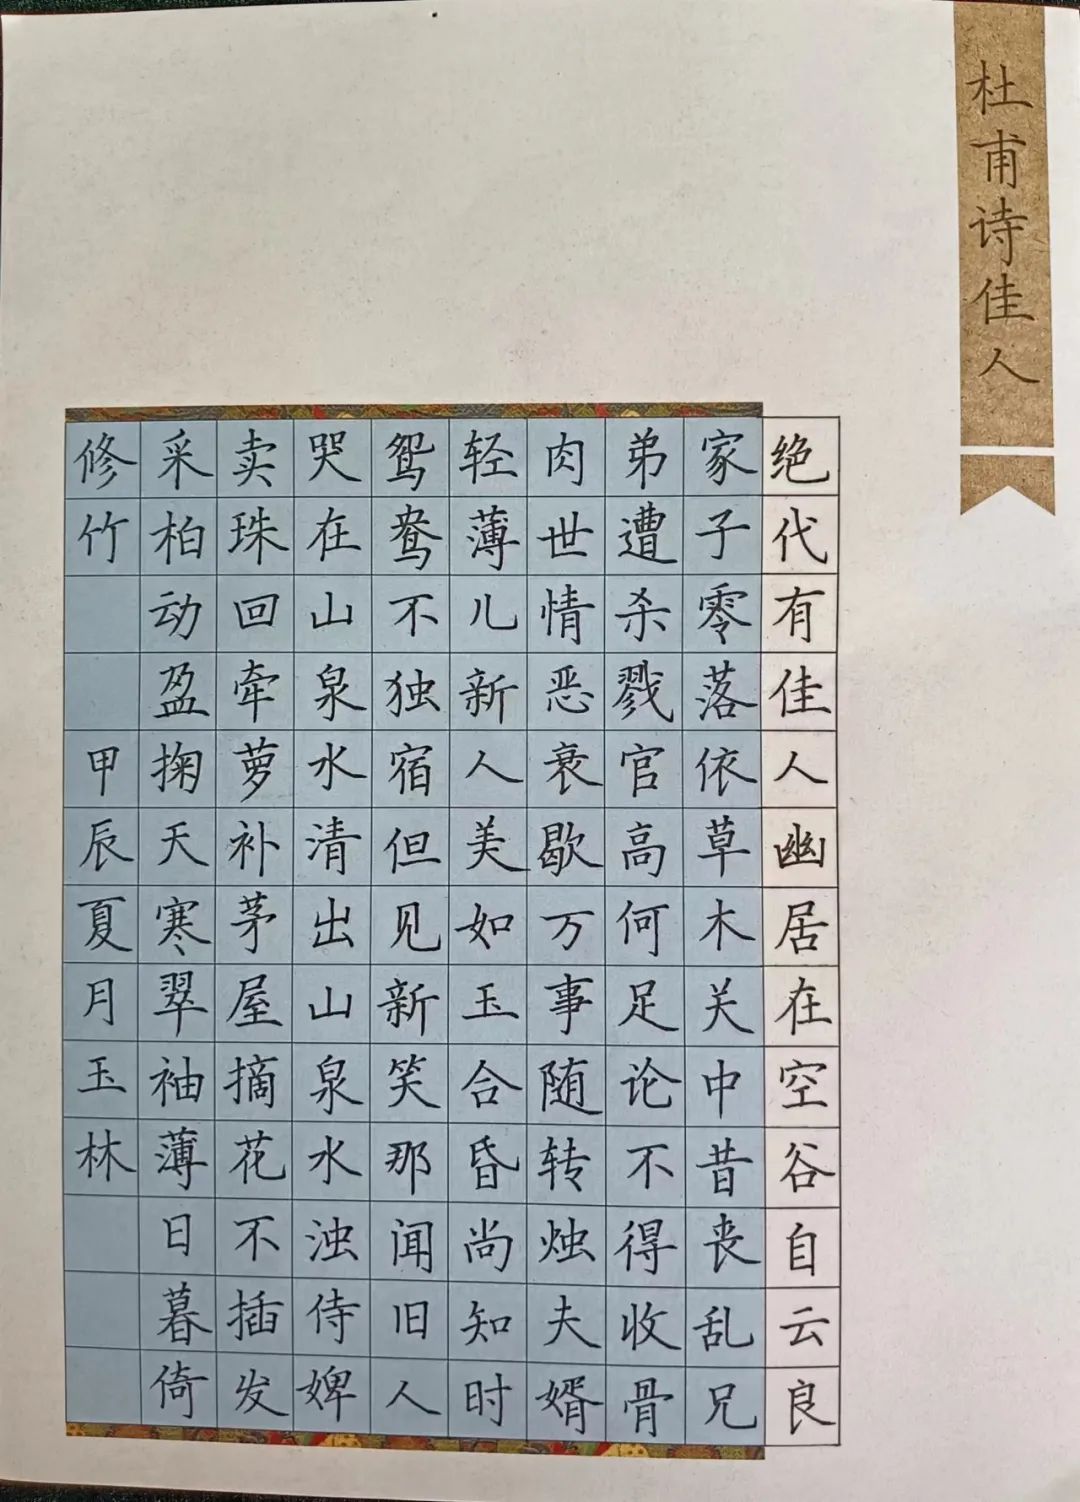 杜甫诗佳人
绝代有佳人幽居在空谷自云良
家子零落依草木关中昔丧乱兄
弟遭杀戮官高何足论不得收骨
肉世情恶衰歇万事随转烛夫婿
轻薄儿新人美如玉合昏尚知时
鸳鸯不独宿但见新笑那闻旧人
哭在山泉水清出山泉水浊侍婢
卖珠回牵萝补茅屋摘花不插发
采柏动盈掬天寒翠袖薄日暮倚
修竹 甲辰夏月玉林